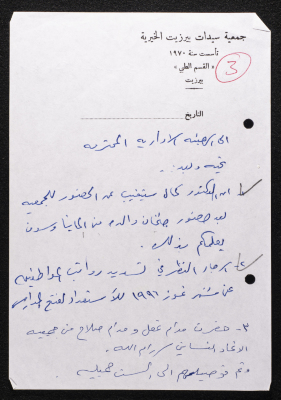 جمعية سيدات بيرزيت الخيرية
تأسست سنة ١٩٧٠
« القسم الطبي »
بيرزيت
3
التاريخ
الى الهيئة الادارية المحترمة
تحية وبعد:
١- الدكتور كمال سيتغيب عن الحضور للجمعية
بعد حضور جثمان والده من المانيا وسوف
يعلمكم بذلك.
٢- الرجاء النظر في تسديد رواتب الموظفين
عن شهر تموز ١٩٩٦ للاستعداد لفتح المدارس
٣- حضرت مدام عقل و مدام صلاح من جمعية
الاتحاد النسائي رام الله.
وتم توصيلهم الى